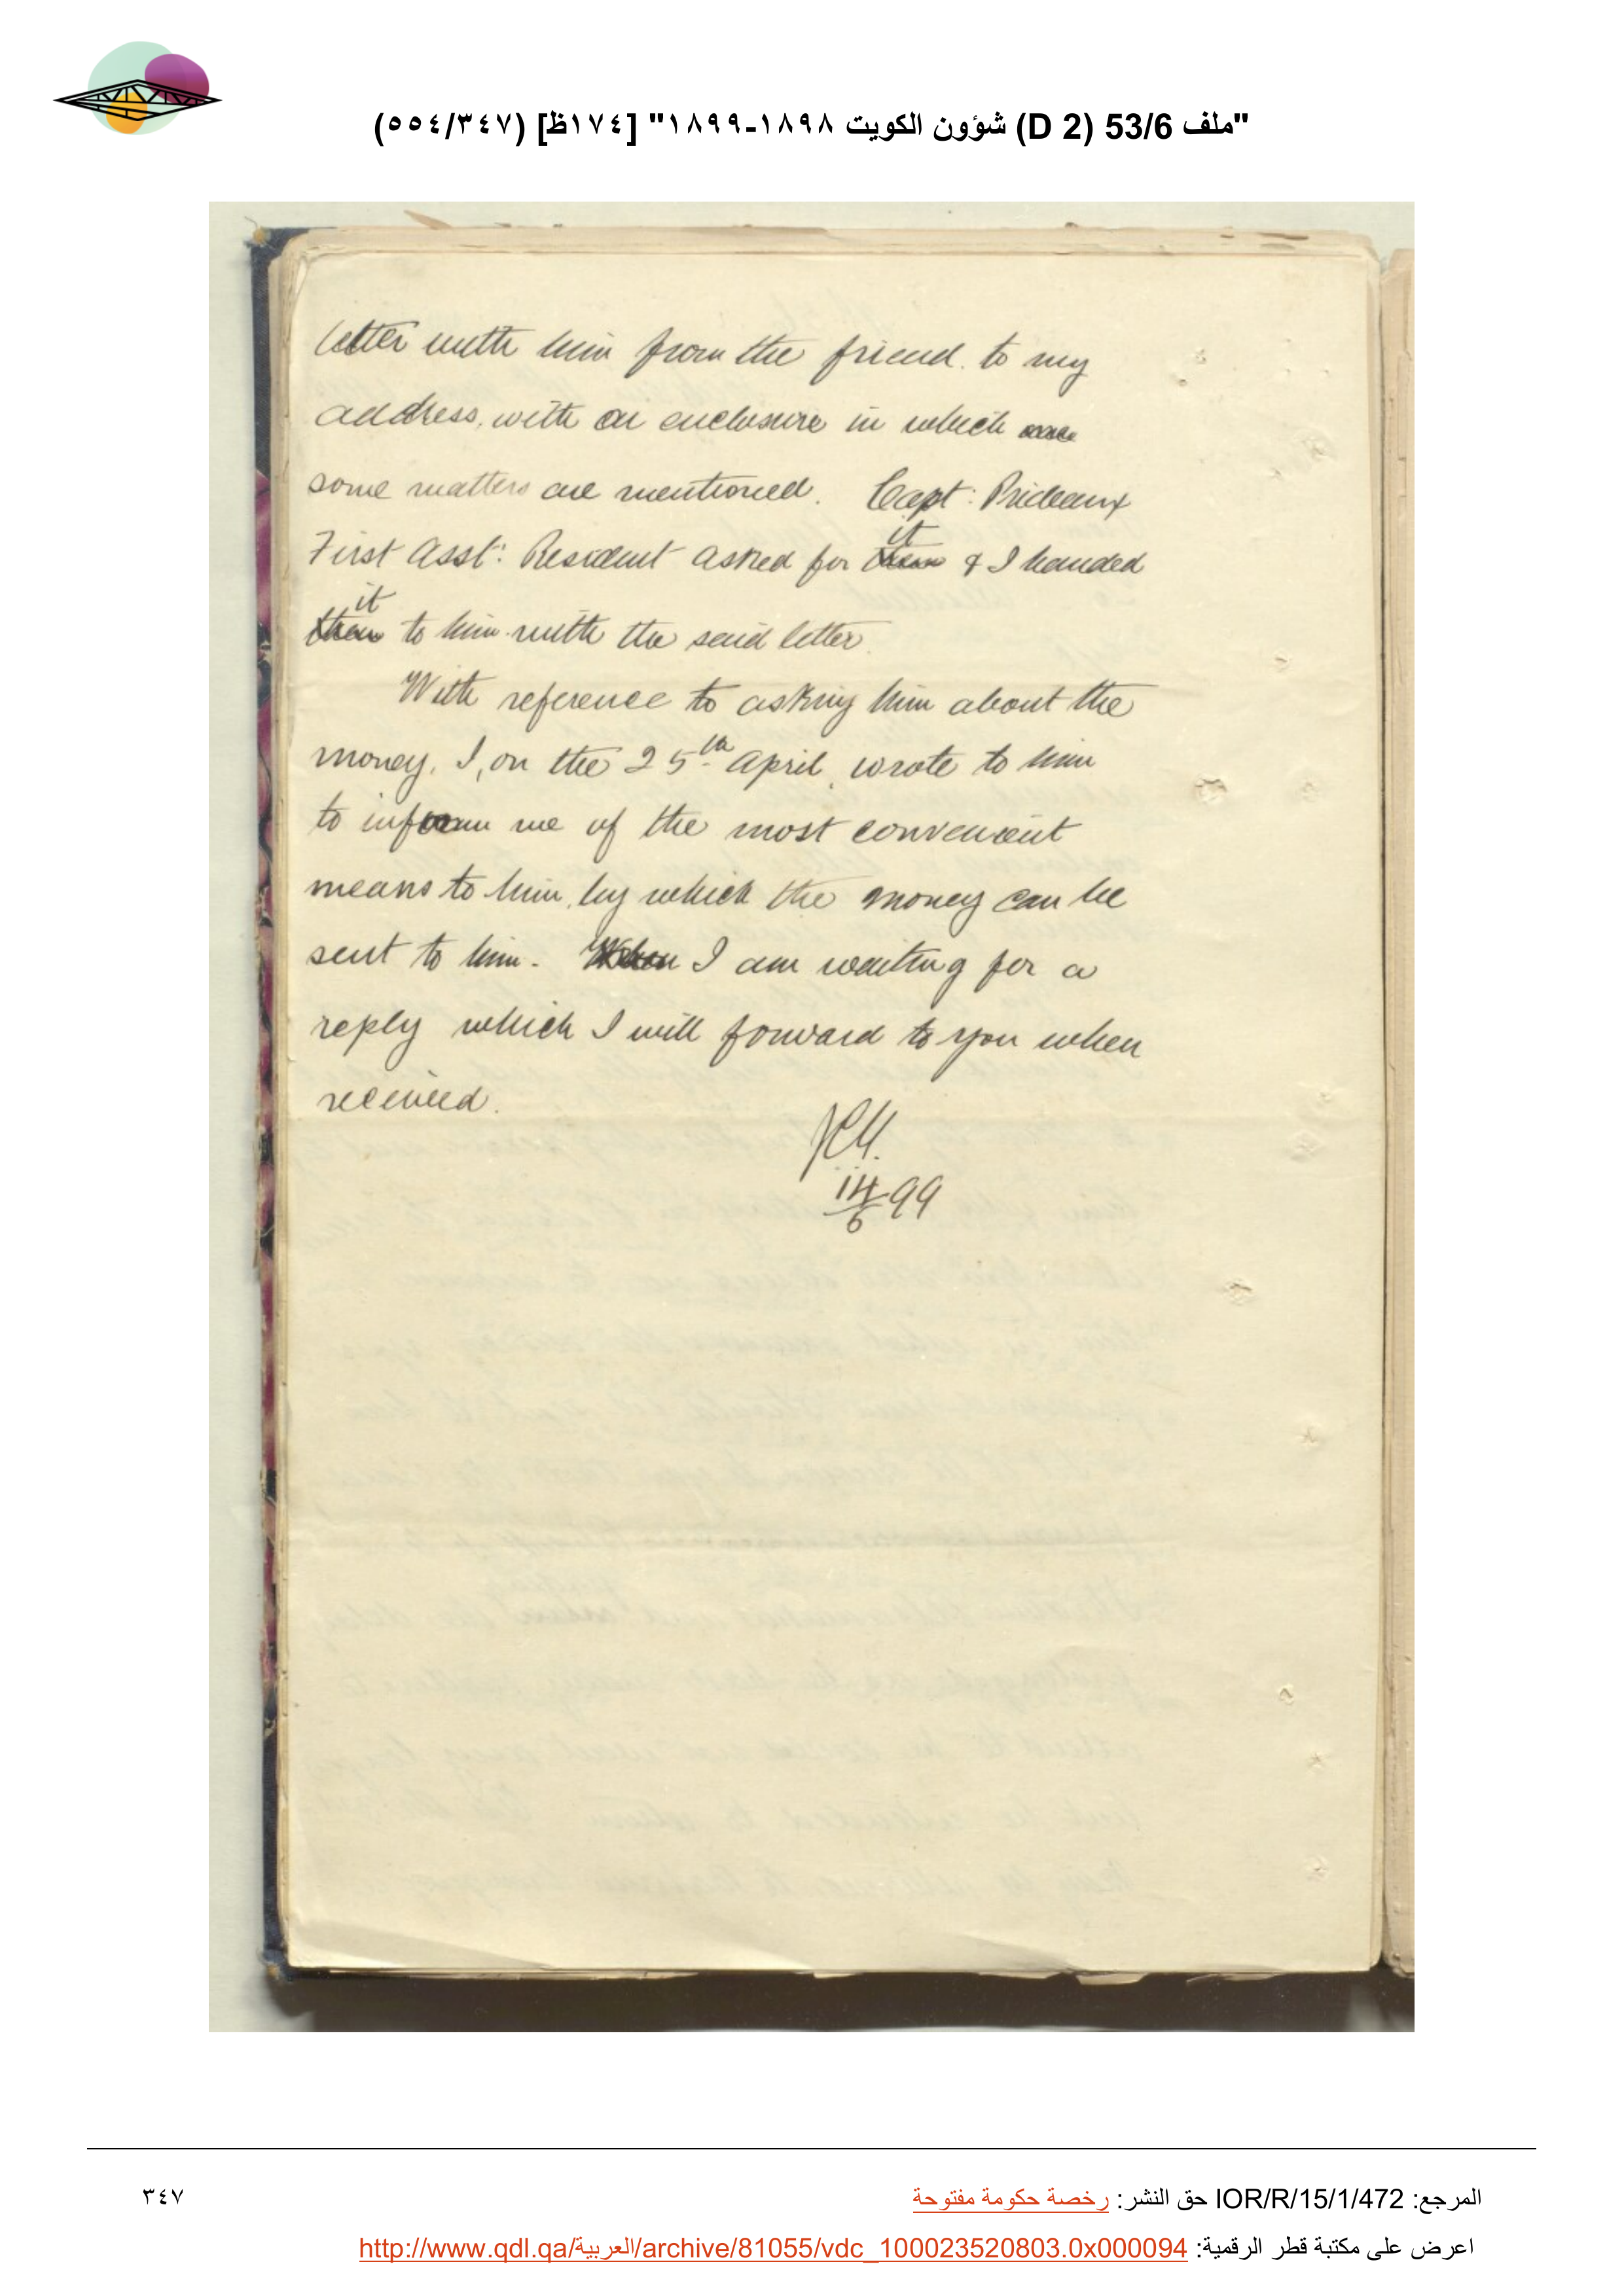 "ملف 53/6 (D 2) شؤون الكويت ١٨٩٨-١٨٩٩" [١٧٤ظ] (٥٥٤/٣٤٧)
letter with him from the friend to my
address, with an enclosure in which
some matters are mentioned. Capt: Prideaux
it
First Asst: Resident asked for them & I handed
it
them to him with the said letter.
With reference to asking him about the
money, I, on the 25th April, wrote to him
to inform me of the most convenient
means to him, by which the money can be
sent to him. When I am waiting for a
reply which I will forward to you when
received.
14/6 99
المرجع: IOR/R/15/1/472 حق النشر: رخصة حكومة مفتوحة
٣٤٧
اعرض على مكتبة قطر الرقمية: http://www.qdl.qa/العربية/archive/81055/vdc_100023520803.0x000094